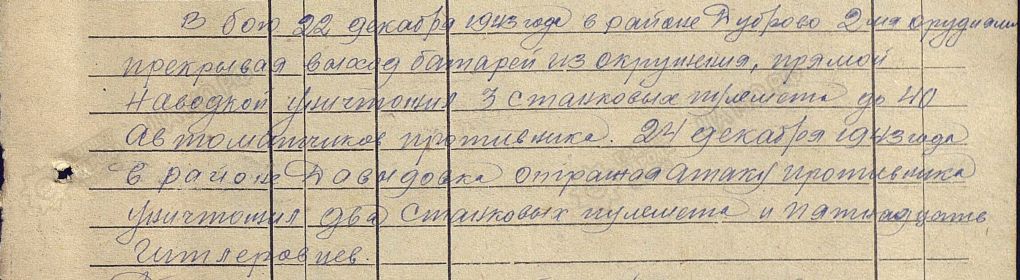 В бою 22 декабря 1943 года в районе Дуброво 2мя орудиями
прекрывая выход батареи из окружения, прямой
наводкой уничтожил 3 станковых пулемета до 40
автоматчиков противника. 24 декабря 1943 года
в район Давыдовка отражая атаку противника
уничтожил два станковых пулемета и пятнадцать
гитлеровцев.